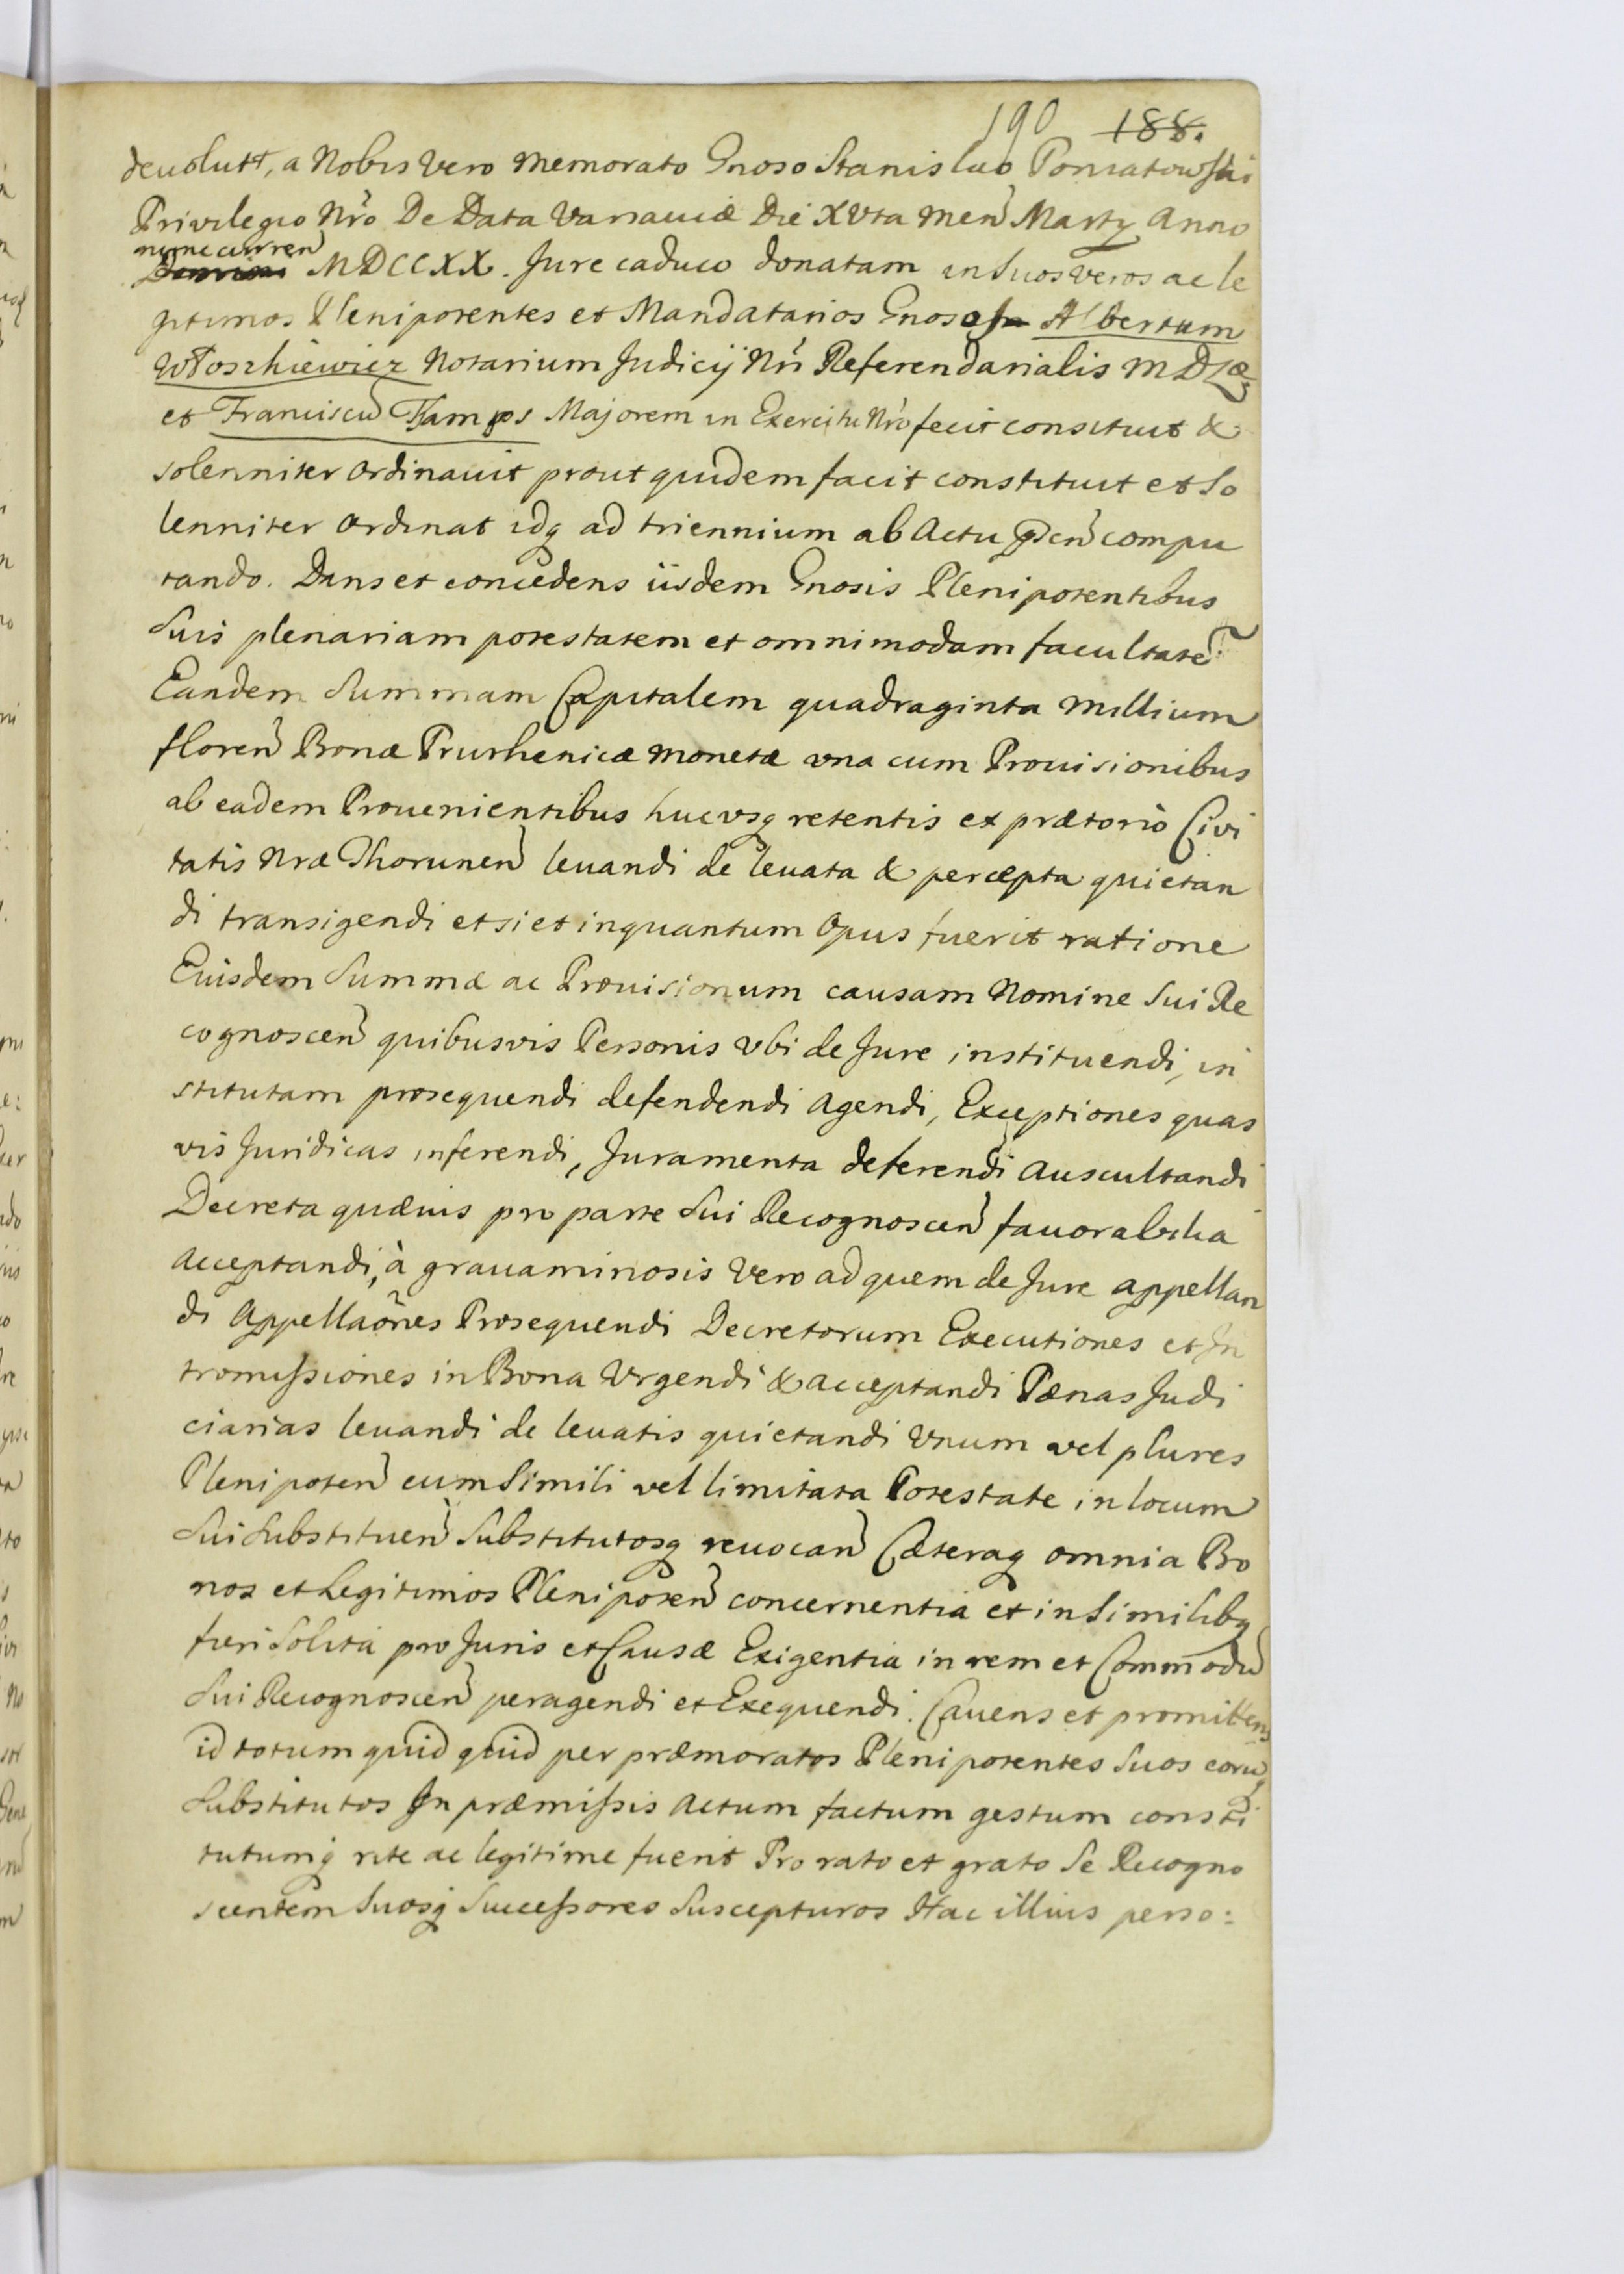 190 188.
devolutt, a Nobis Vero memorato Gnoso Stanislao Poniatowski
Privilegio Nr̃o De Data Varsaviæ Die XVta Men̄ Martij Anno
nunc curren̄
Domini MDCCXX. Jure caduco donatam in Suos veros ac le
gitimos Plenipotentes et Mandatarios Gnosos Albertum
Włoszkiewicz Notarium Judicij Nr̃i Referendarialis M D L æ
et Franciscū Kamps Majorem in Exercitu Nr̃o fecit constituit &
solenniter ordinavit prout quidem facit constituit et So
lenniter Ordinat idq ad triennium ab Actu p̄n̄ compu
tando. Dans et concedens iisdem Gnosis Plenipotentibus
Suis plenariam potestatem et omnimodam facultatē
Eandem Summam Capitalem quadraginta Millium
floren̄ Bonæ Pruthenicæ Monetæ una cum Provisionibus
ab eadem Provenientibus hucvsq retentis ex prætorio Civi
tatis Nræ Thorunen̄ levandi de levata & percepta quietan
di transigendi et si et inquantum Opus fuerit ratione
Eiusdem Summæ ac Provisionum causam Nomine Sui Re
cognoscen̄ quibusvis Personis vbi de Jure instituendi, in
stitutam prosequendi defendendi Agendi, Exceptiones quas
vis Juridicas inferendi, Juramenta deferendi auscultandi
Decreta quævis pro parte Sui Recognoscen̄ favorabilia
acceptandi, à gravaminosis Vero ad quem de Jure appellan
di Appellaõnes Prosequendi Decretorum Executiones et In
tromissiones in Bona Vrgendi & acceptandi Pænas Judi
ciarias levandi de levatis quietandi Vnum vel plures
Plenipoten̄ cum Simili vel limitata Potestate in locum
Sui Substituen̄ Substitutosq revocan̄ Cæteraq omnia Bo
nos et Legitimos Plenipoten̄ concernentia et in Similibq
fieri Solita pro Juris et Causæ Exigentia in rem et Commodū
Sui Recognoscen̄ peragendi et Exequendi. Cavens et promittens
id totum quid quid per præmoratos Plenipotentes Suos eorūq
Substitutos In præmissis Actum factum gestum consti
tutumq rite ac legitime fuerit Pro rato et grato Se Recogno
scentem Suosq Successores Suscepturos Hac illius perso: